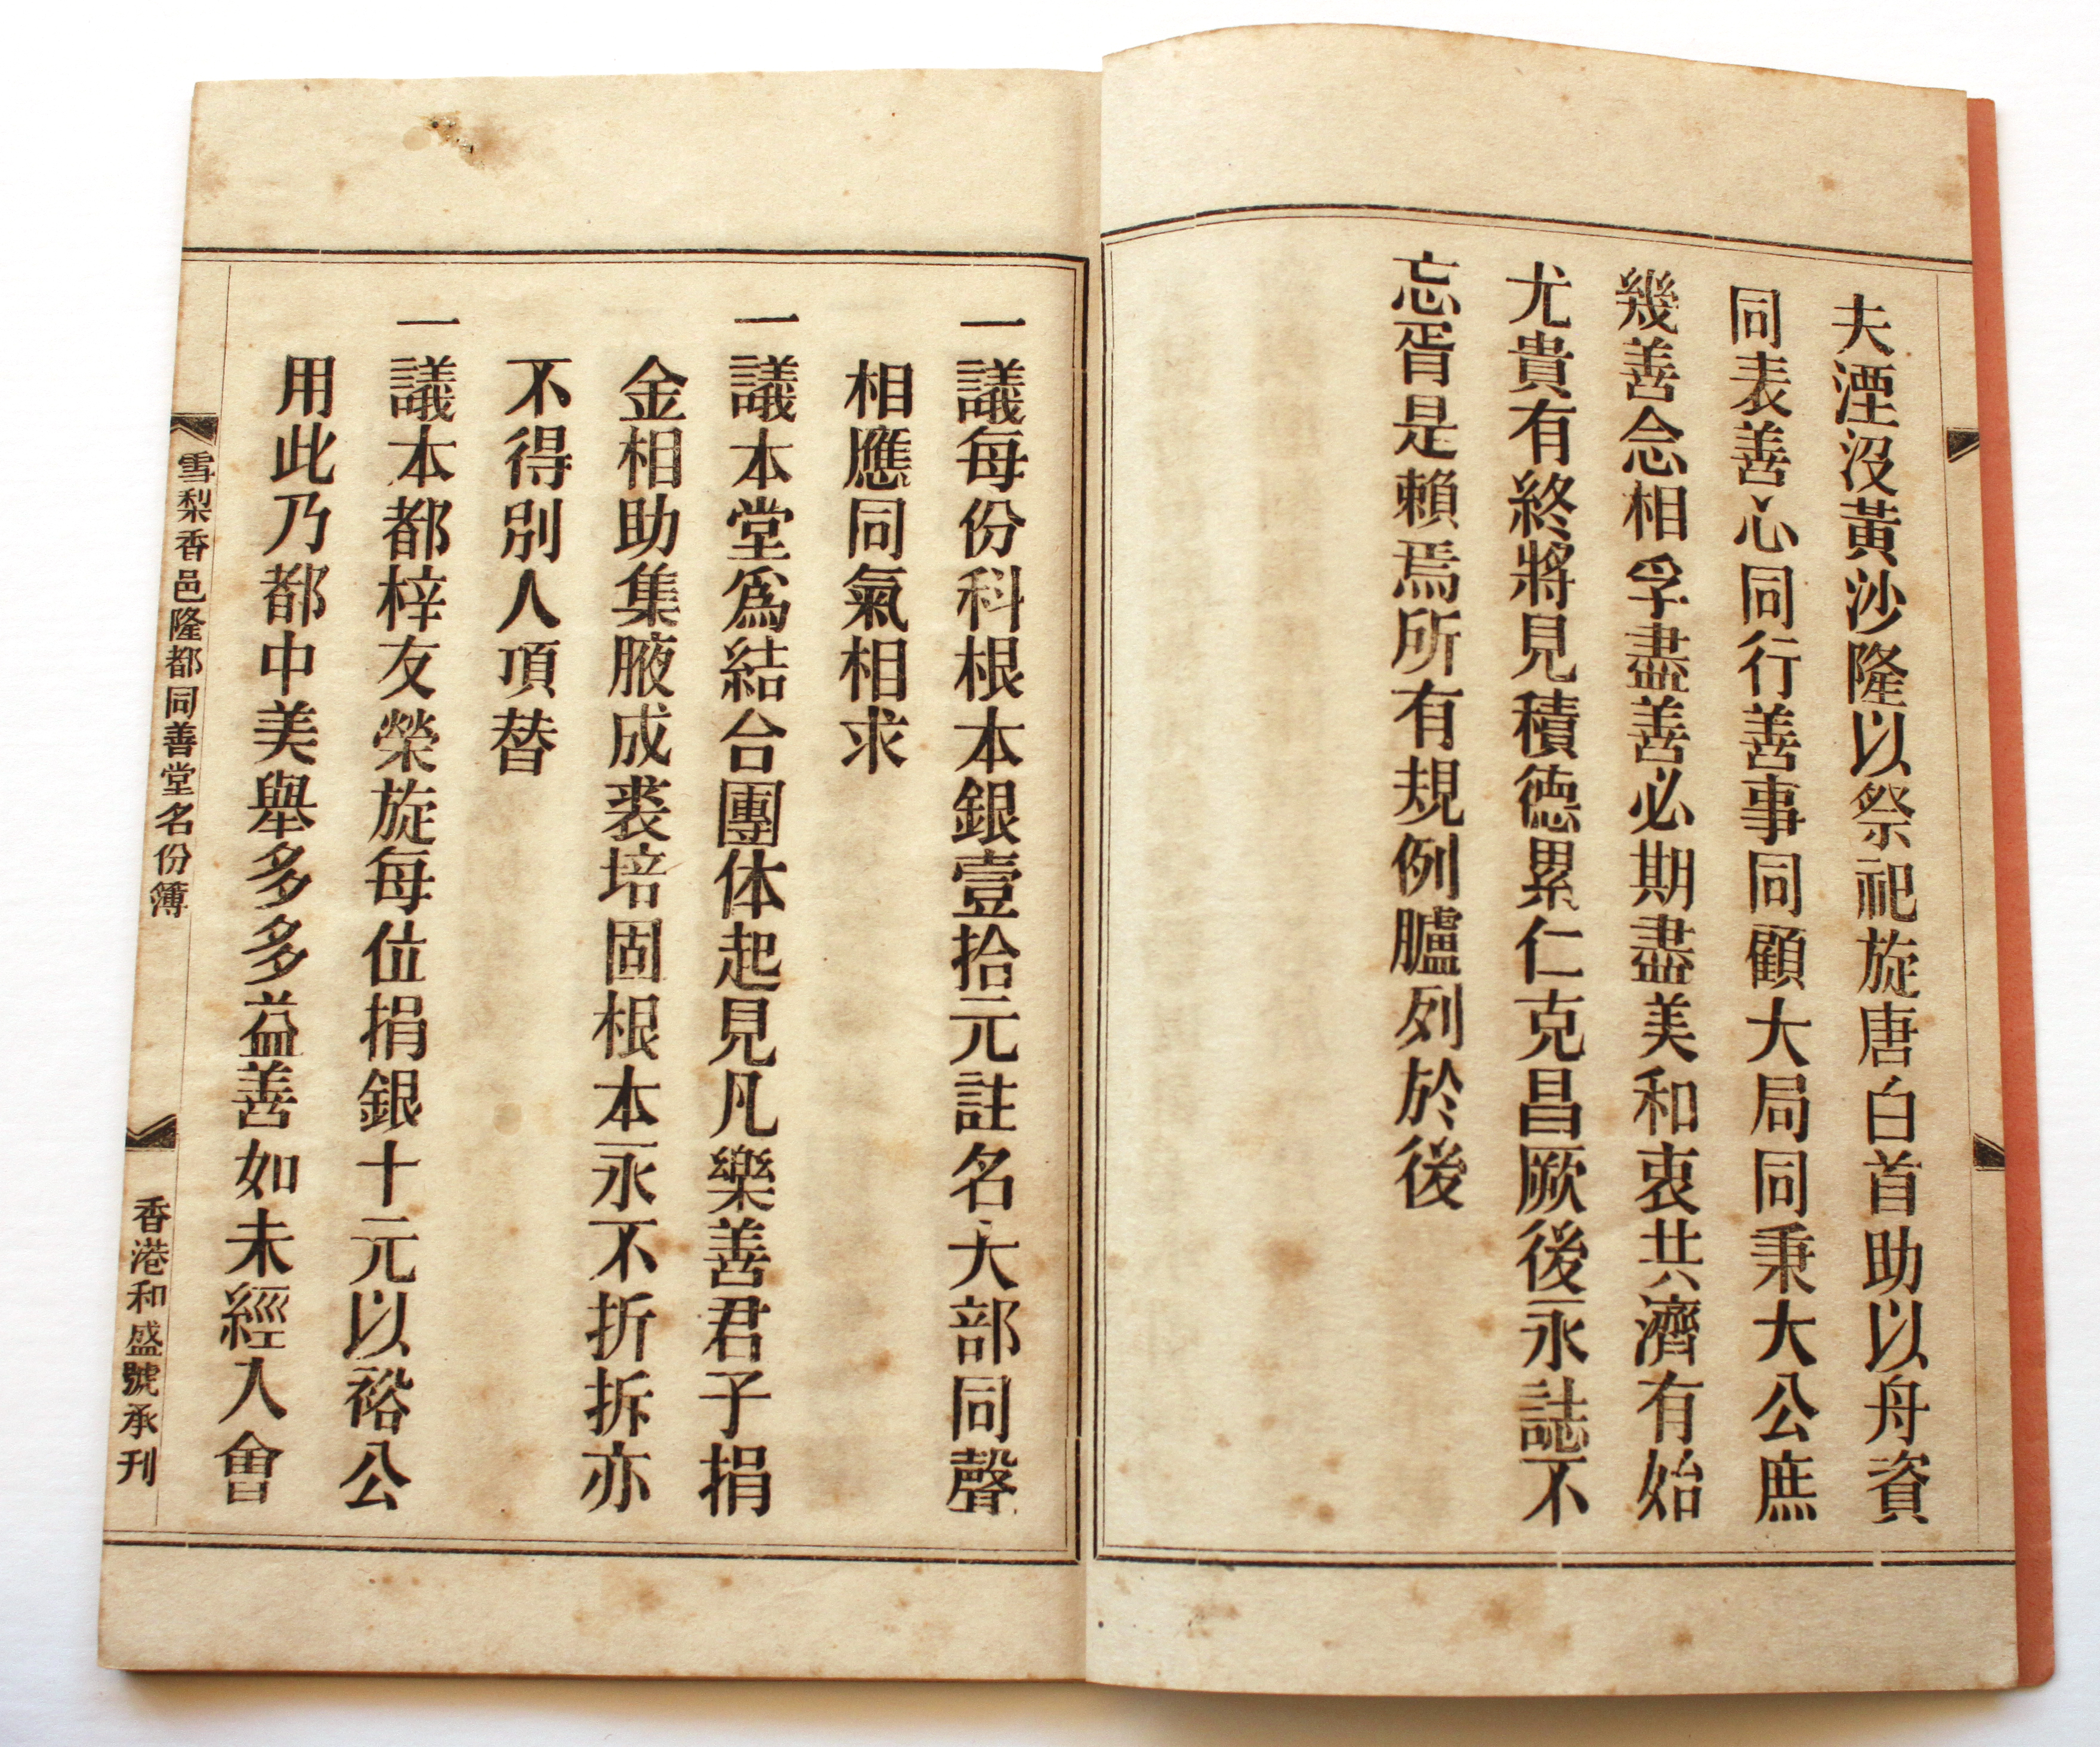 夫湮沒黃沙隆以祭祀旋唐白首助以舟資
同表善心同行善事同顧大局同秉大公庶
幾善念相孚盡善必期盡美和衷共濟有始
尤貴有終將見積德累仁克昌厥後永誌不
忘胥是賴焉所有規例臚列於後
一議每份科根本銀壹拾元註名大部同聲
相應同氣相求
一議本堂爲結合團体起見凡樂善君子捐
金相助集腋成裘培固根本永不折拆亦
不得別人頂替
一議本都梓友榮旋每位捐銀十元以裕公
用此乃都中美舉多多益善如未經入會
雪梨香邑隆都同善堂名份簿
香港和盛號承刊